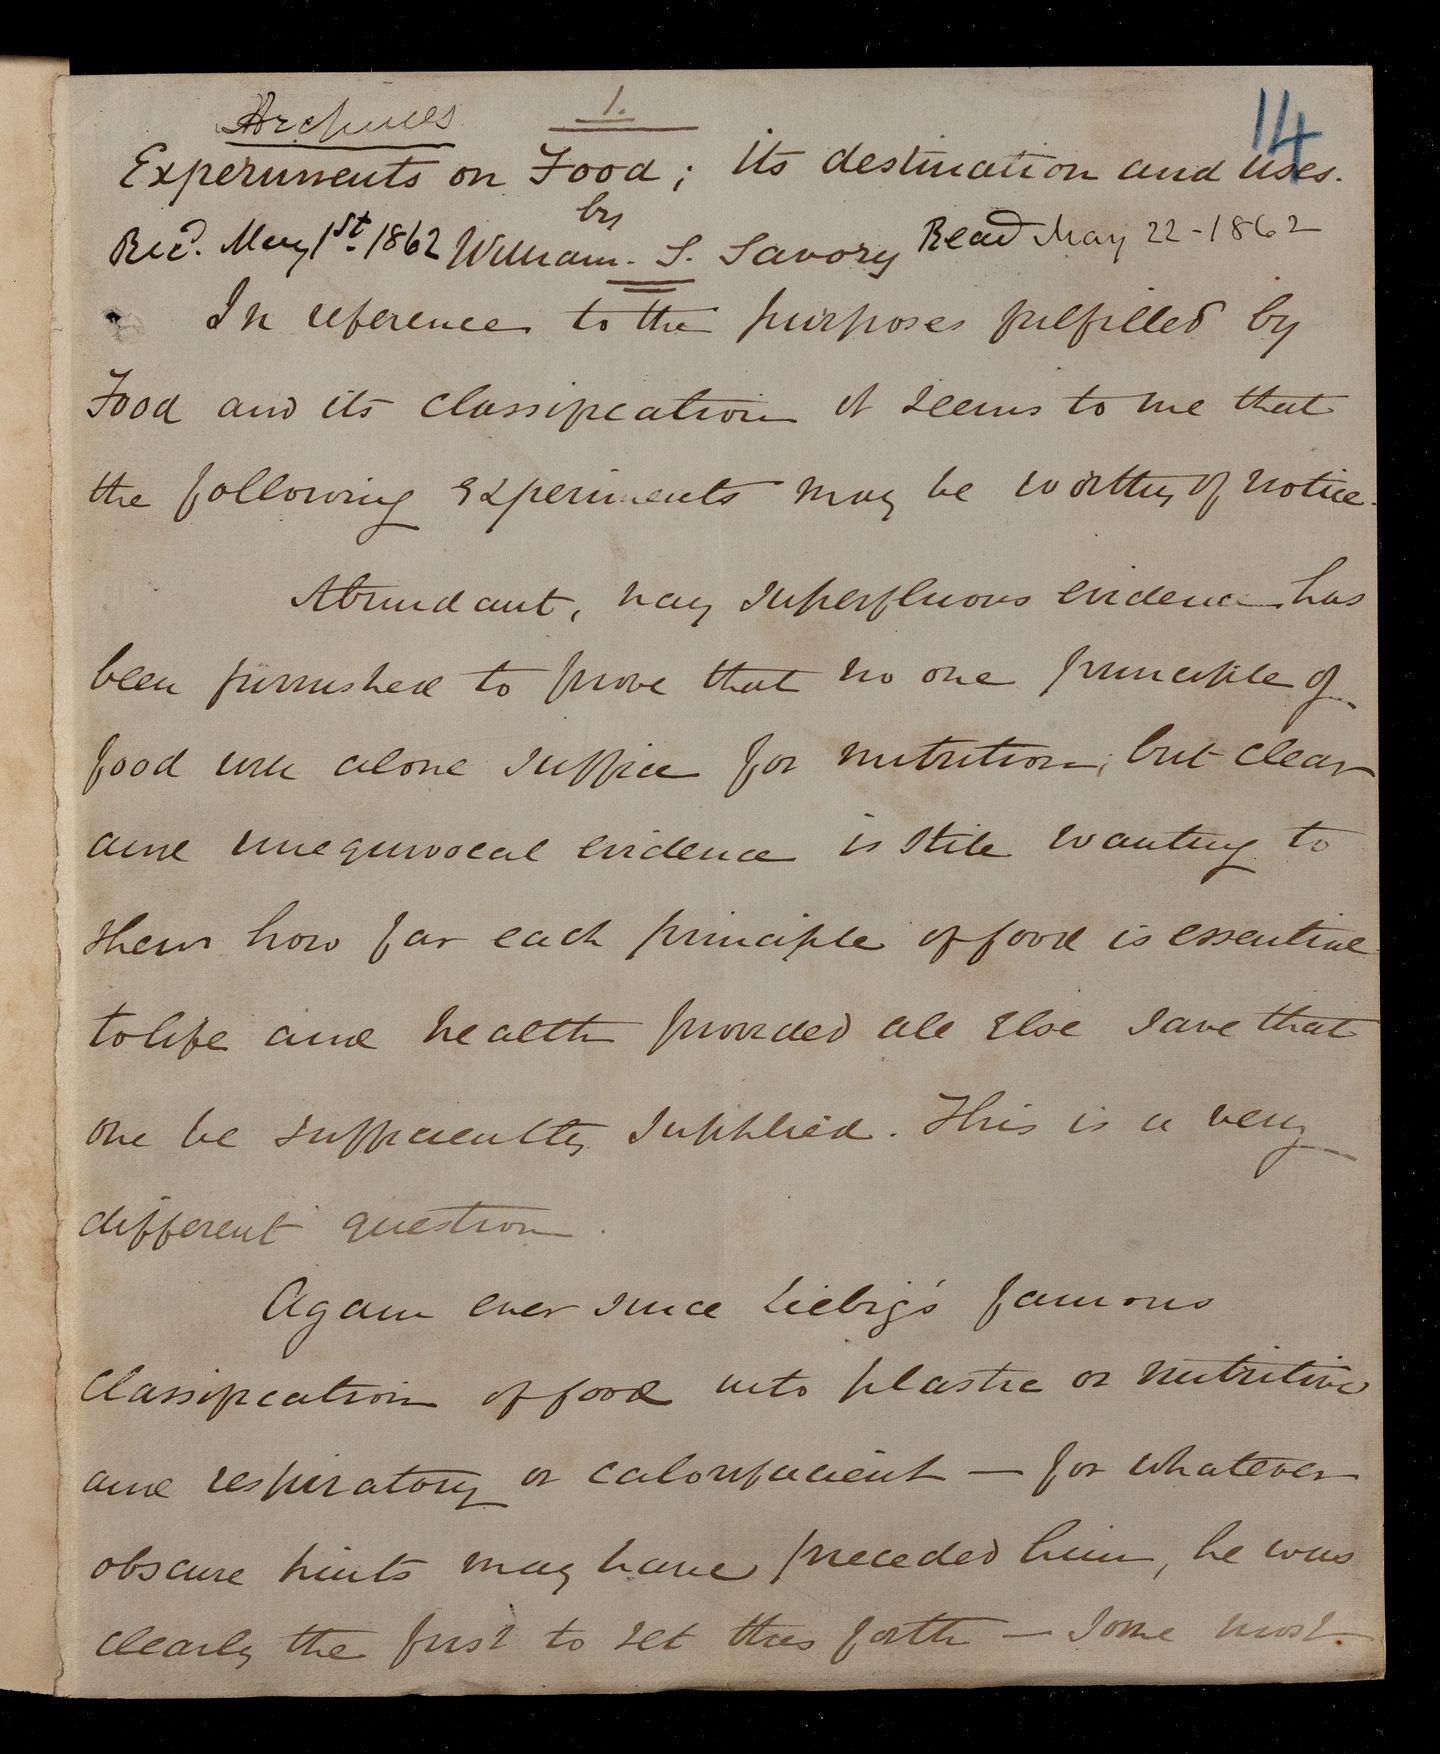 Archives
1.
14
Experiments on Food; its destination and uses.
by
Recd. May 1st. 1862 William. S. Savory Read May 22 - 1862
In reference to the purposes fulfilled by
Food and its classification it seems to me that
the following experiments may be worthy of notice.
Abundant, nay superfluous evidence has
been furnished to prove that no one principle of
food will alone suffice for nutrition, but clear
and unequivocal evidence is still wanting to
shew how far each principle of food is essential
to life and health provided all else save that
one be sufficiently supplied. This is a very
different question.
Again ever since Liebig's famous
classification of food into plastic or nutritive
and respiratory or calorifacient — for whatever
obscure hints may have preceded him, he was
clearly the first to set this forth — some most